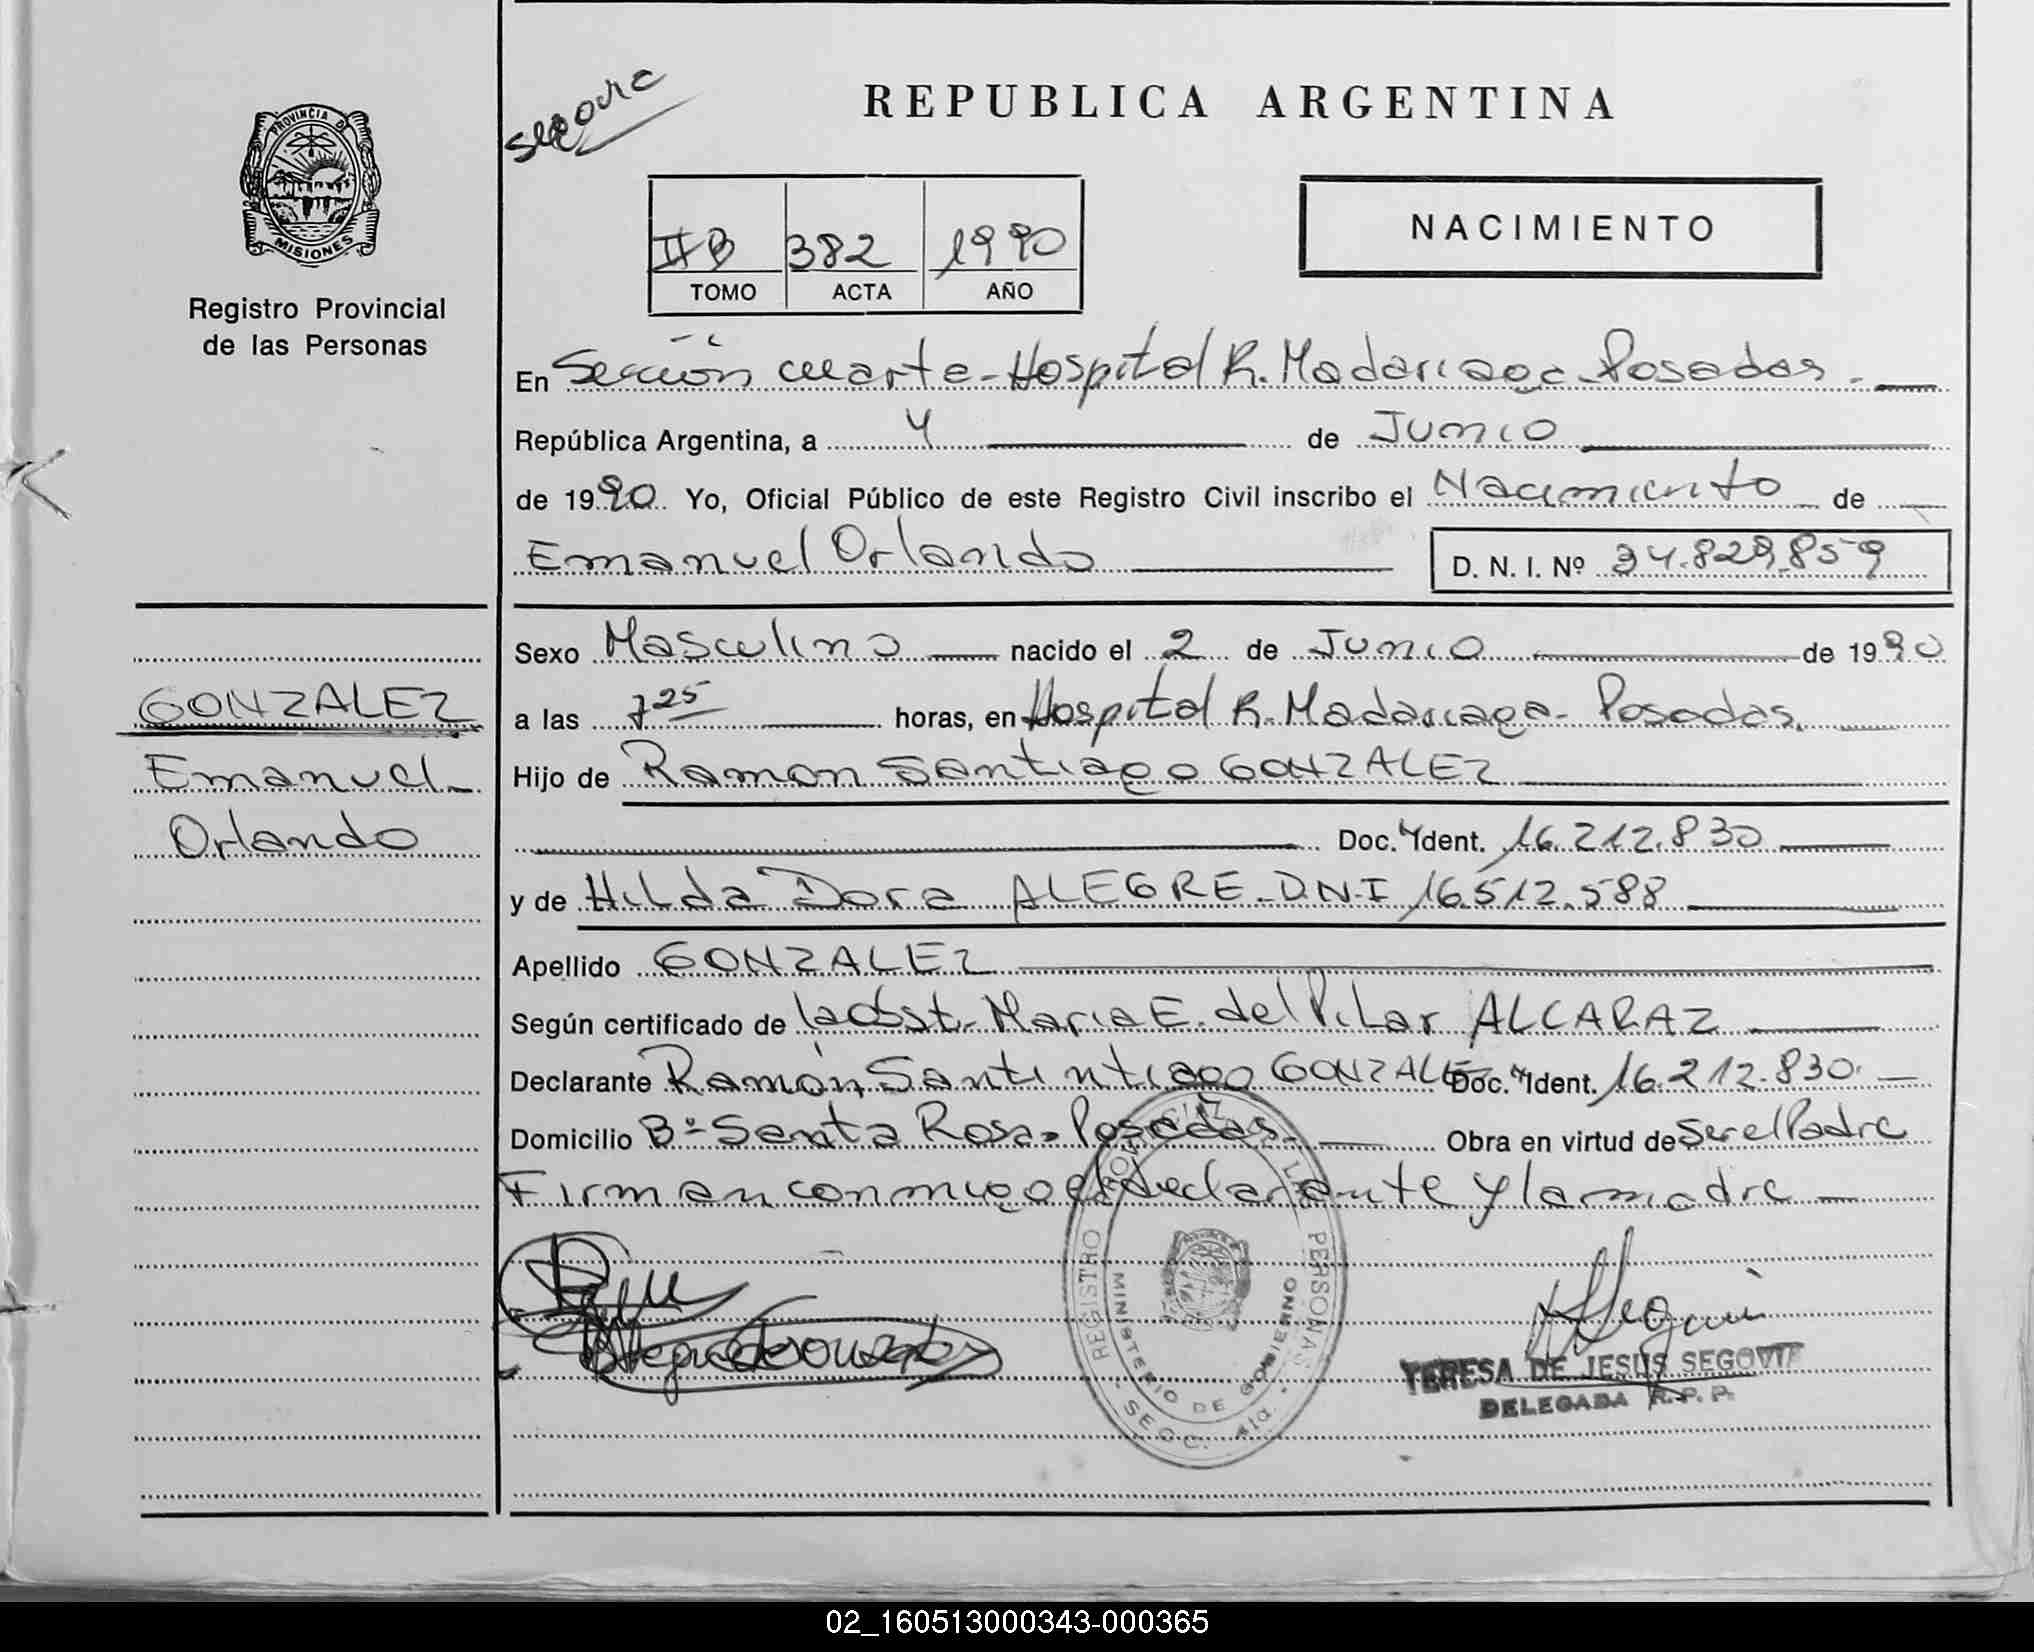 REPUBLICA ARGENTINA
PROVINCIA DE
MISIONES
Registro Provincial
de las Personas
IIB 382 1990
TOMO ACTA AÑO
NACIMIENTO
En Sección cuarta - Hospital R. Madariaga - Posadas -
República Argentina, a 4 de Junio
de 1990 Yo, Oficial Público de este Registro Civil inscribo el Nacimiento de
Emanuel Orlando D. N. I. Nº 34.829.859
Sexo Masculino nacido el 2 de Junio de 1990
GONZALEZ
a las 7 25 horas, en Hospital R. Madariaga - Posadas.
Emanuel
Hijo de Ramon Santiago GONZALEZ
Orlando
Doc. Ident. 16.212.830
y de Hilda Dora ALEGRE - D.N.I 16.512.588
Apellido GONZALEZ
Según certificado de la Obst. Maria E. del Pilar ALCARAZ
Declarante Ramón Santi ntiago GONZALE Doc. Ident. 16.212.830.
Domicilio Bº Santa Rosa - Posadas - Obra en virtud de Ser el Padre
Firman conmigo el declarante y la madre
REGISTRO PROVINCIAL LAS PERSONAS
MINISTERIO DE GOBIERNO
SECC. 4ta.
TERESA DE JESUS SEGOVIA
DELEGADA R.P.P.
02_160513000343-000365